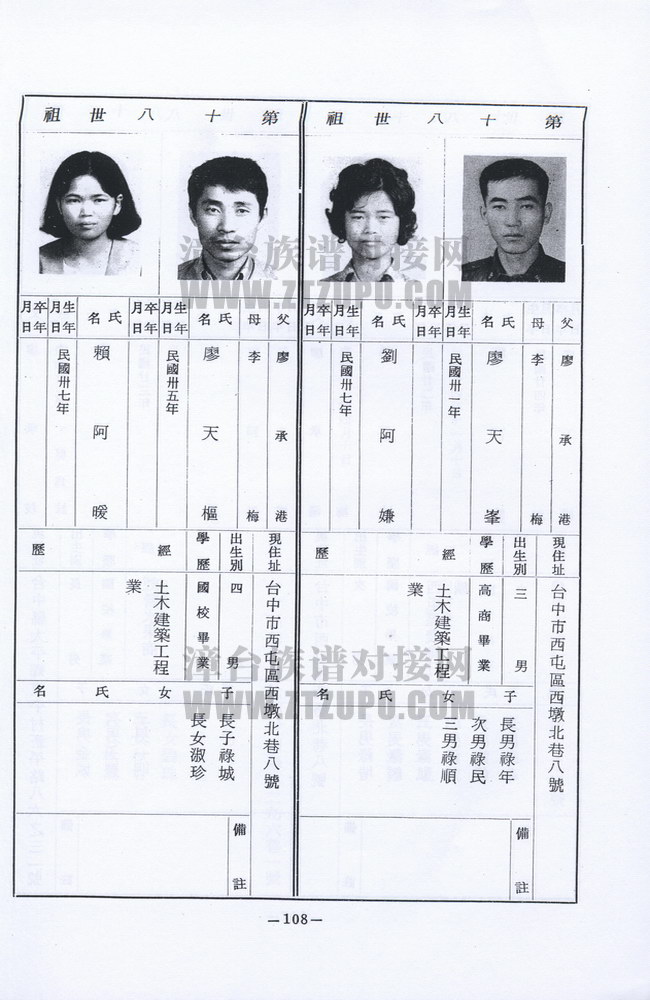 第十八世祖
父 廖承港
母 李梅
氏名 廖天峯
生年月日 民國卅一年
卒年月日
氏名 劉阿嫌
生年月日 民國卅七年
卒年月日
現住址 台中市西屯區西墩北巷八號
出生別 三男
學歷 高商畢業
經歷 土木建築工程業
子女氏名
長男祿年
次男祿民
三男祿順
備註
第十八世祖
父 廖承港
母 李梅
氏名 廖天樞
生年月日 民國卅五年
卒年月日
氏名 賴阿暖
生年月日 民國卅七年
卒年月日
現住址 台中市西屯區西墩北巷八號
出生別 四男
學歷 國校畢業
經歷 土木建築工程業
子女氏名
長子祿城
長女淑珍
備註
—108—
漳台族谱对接网
WWW.ZTZUPU.COM
漳台族谱对接网
WWW.ZTZUPU.COM